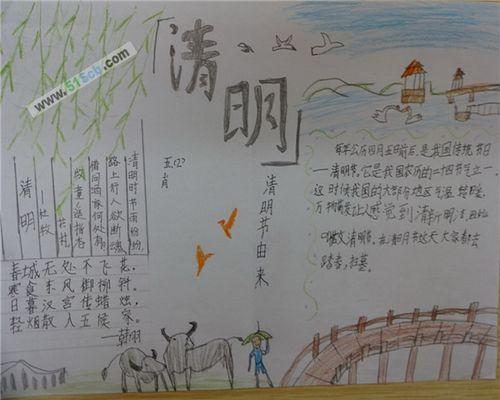 「清明」
www.515cb.com
五(2)
肖
清明节由来
每年公历四月五日前后,是我国传统节日
——清明节,它是我国农历的二十四节气之一
这时候我国的大部份地区气温
万物 让人感觉到清新明
清明节。在清明节这天大家都去
踏青,扫墓。
清明时节雨纷纷,
路上行人欲断魂
借问酒家何处有,
牧童遥指杏
花村。
——杜牧
清明
春城无处不飞花,
寒食东风御柳斜。
日暮汉宫传蜡烛,
轻烟散入五侯家。
——韩翃